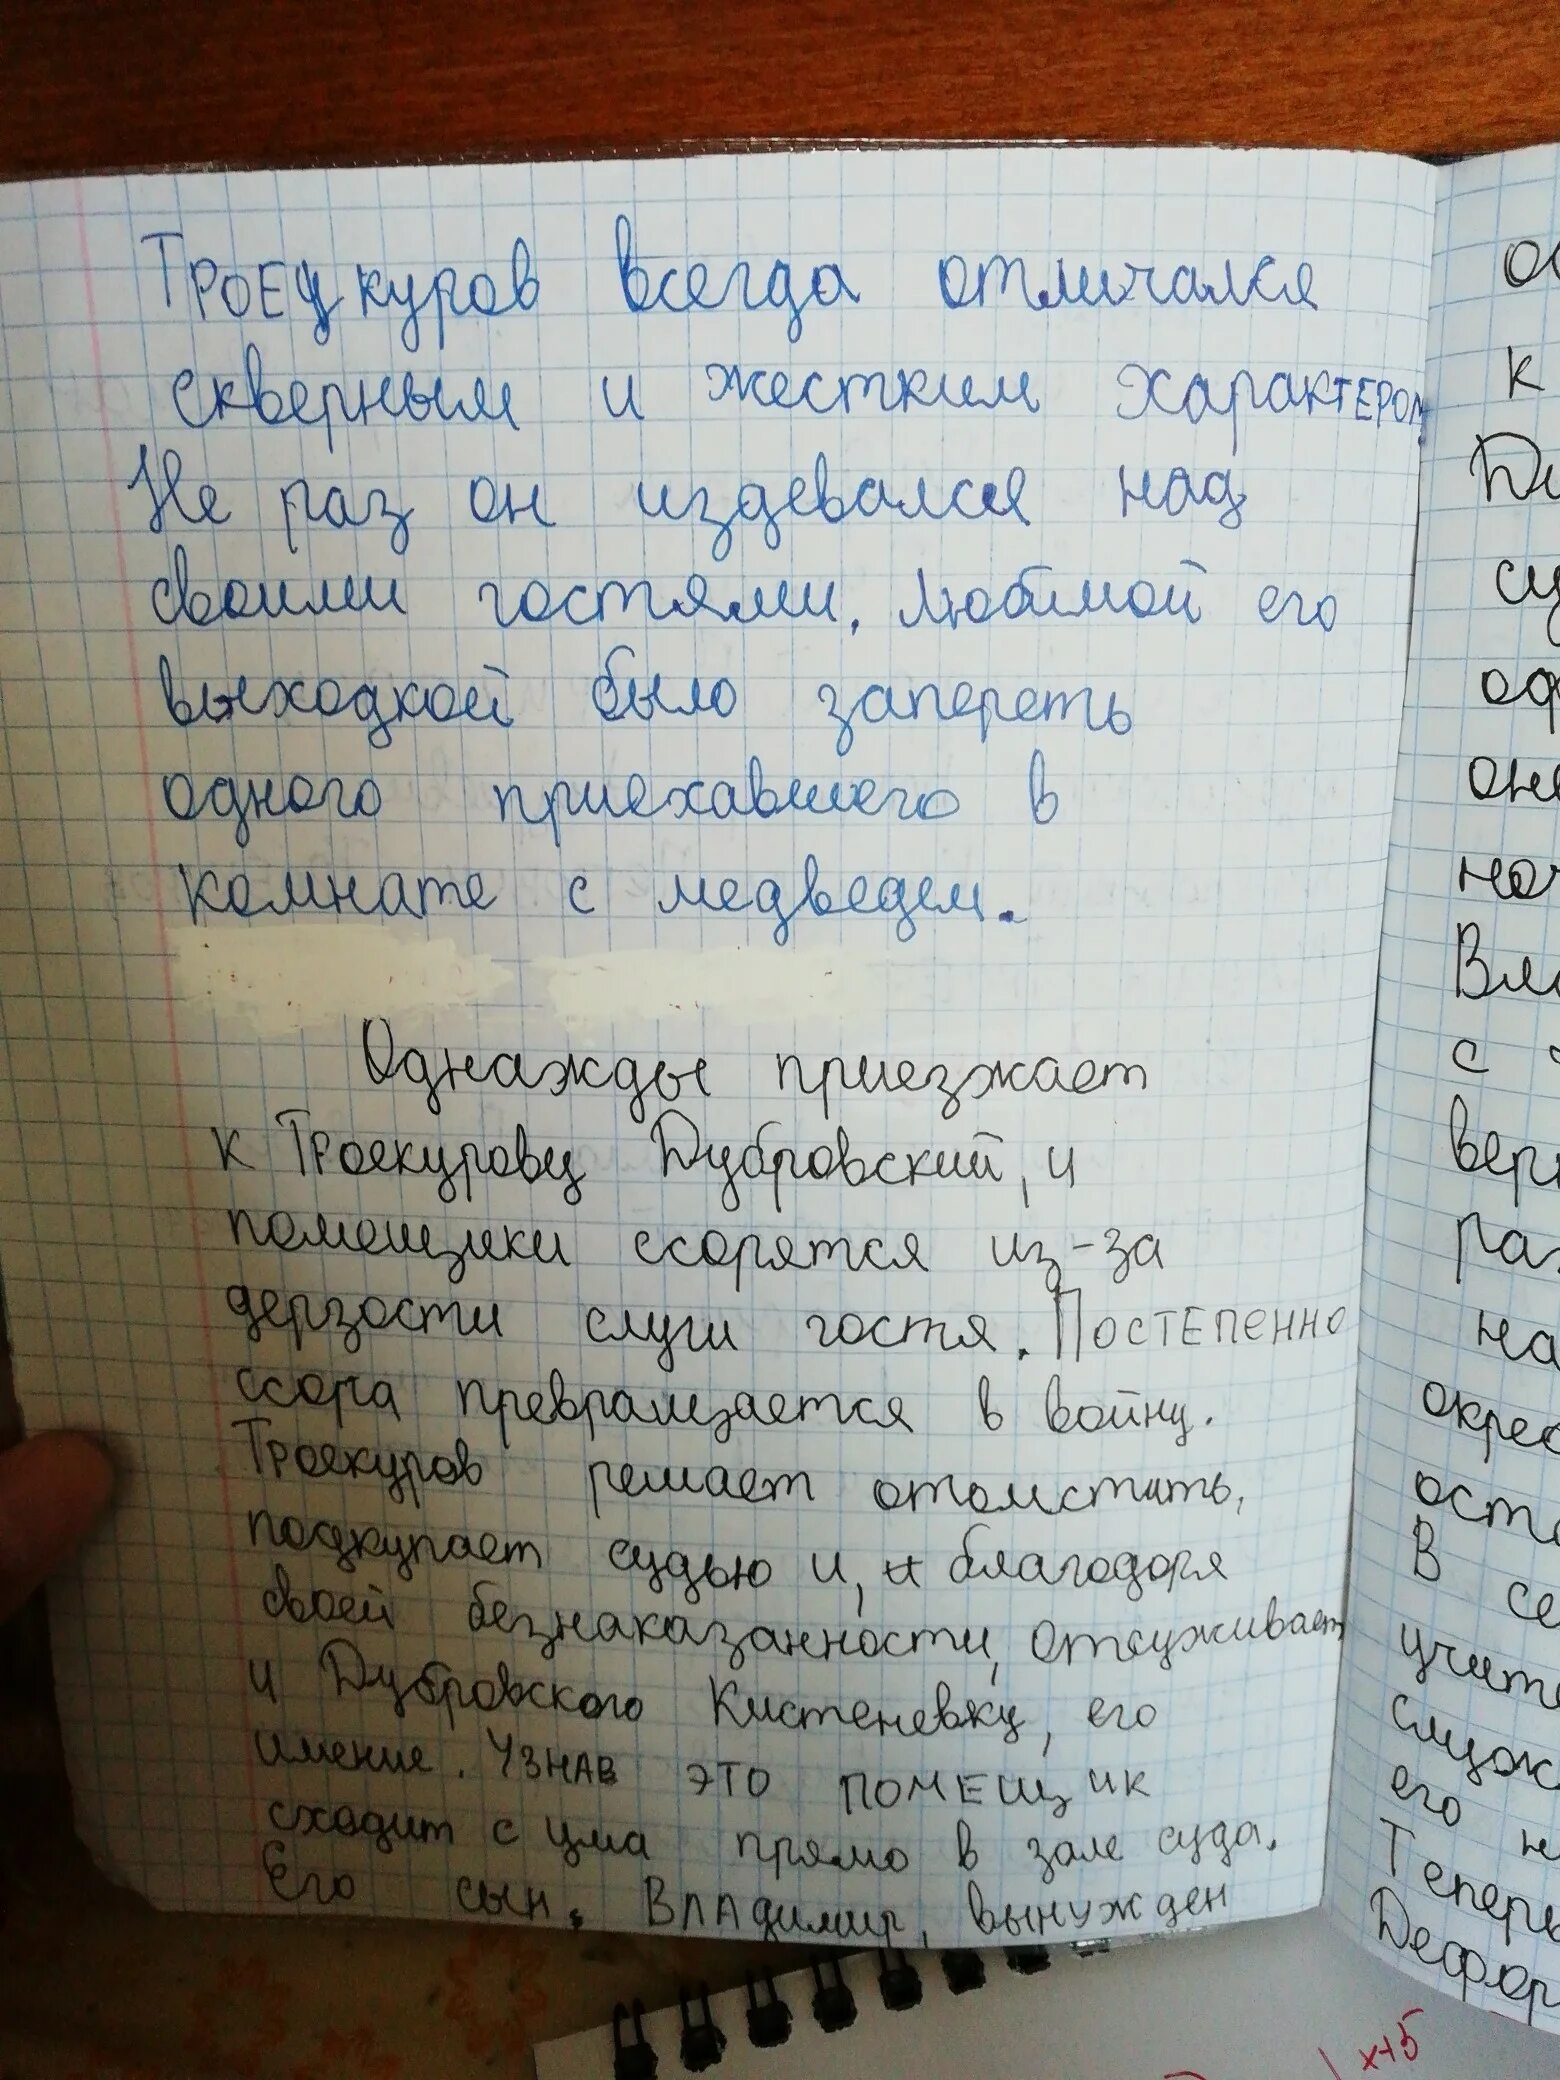 Троекуров всегда отличался
скверным и жестким характером
Не раз он издевался над
своими гостями. Любимой его
выходкой было запереть
одного приехавшего в
комнате с медведем.
Однажды приезжает
к Троекурову Дубровский, и
помещики ссорятся из-за
дерзости слуги гостя. Постепенно
ссора превращается в войну.
Троекуров решает отомстить,
подкупает судью и, и благодоря
своей безнаказанности, отсуживает
и Дубровского Кистеневку, его
имение. Узнав это помещик
сходит с ума прямо в зале суда.
Его сын, Владимир, вынужден
к
с
В
его
Теперь
x+5